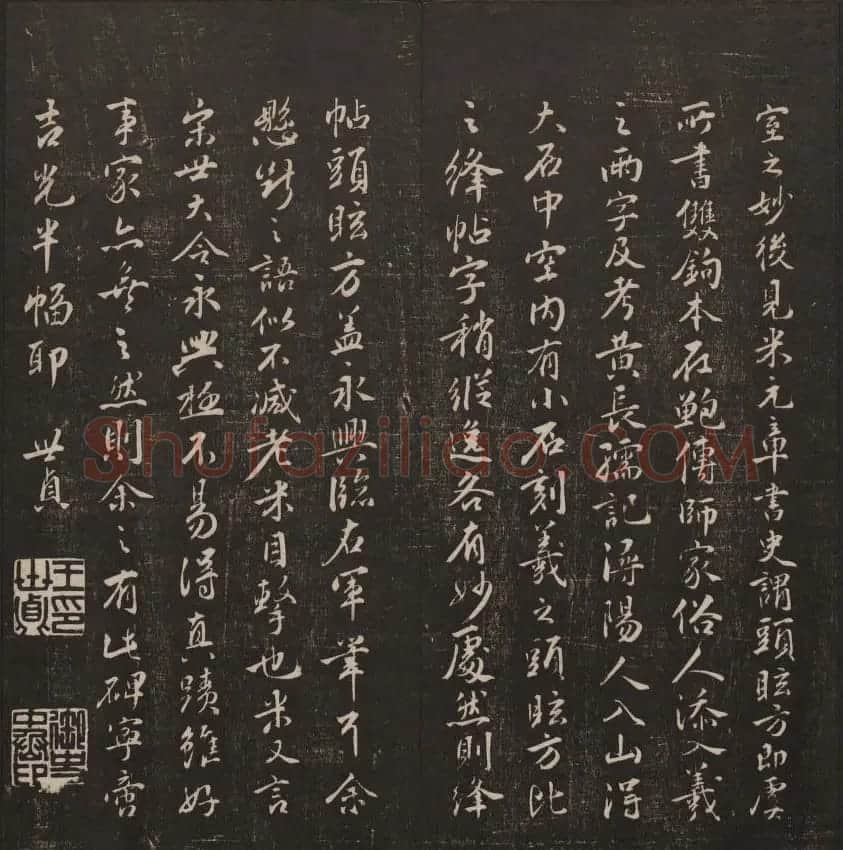 室之妙後見米元章書史謂頭眩方即虞
所書雙鉤本在鮑傳師家俗人添入羲
之兩字及考黃長孺記潯陽人入山得
大石中空內有小石刻羲之頭眩方比
之絳帖字稍縱逸各有妙處然則絳
帖頭眩方蓋永興臨右軍筆耳余
懸斷之語似不減老米目擊也米又言
宋世大令永興極不易得真蹟雖好
事家亦無之然則余之有此碑寧啻
吉光半幅耶 世貞
王世貞印
Shufaziliao.COM